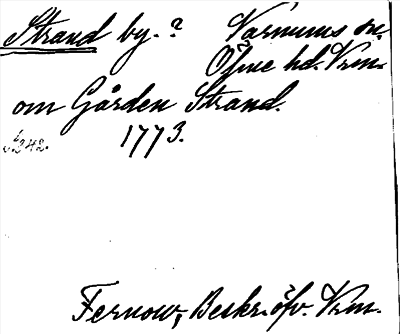 Strand by.? Varnums sn.
Ölme hd. Vrm.
om Gården Strand.
1773.
s. 242.
Fernow, Beskr. öfv. Vrm.